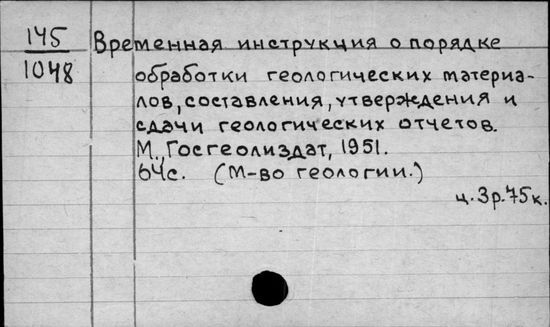 145
1048
Временная инструкция о порядке
обработки геологических материа-
лов, составления, утверждения и
сдачи геологических отчетов.
М., Госгеолиздат, 1951.
64с. (М-во геологии.)
ц. 3р. 75к.